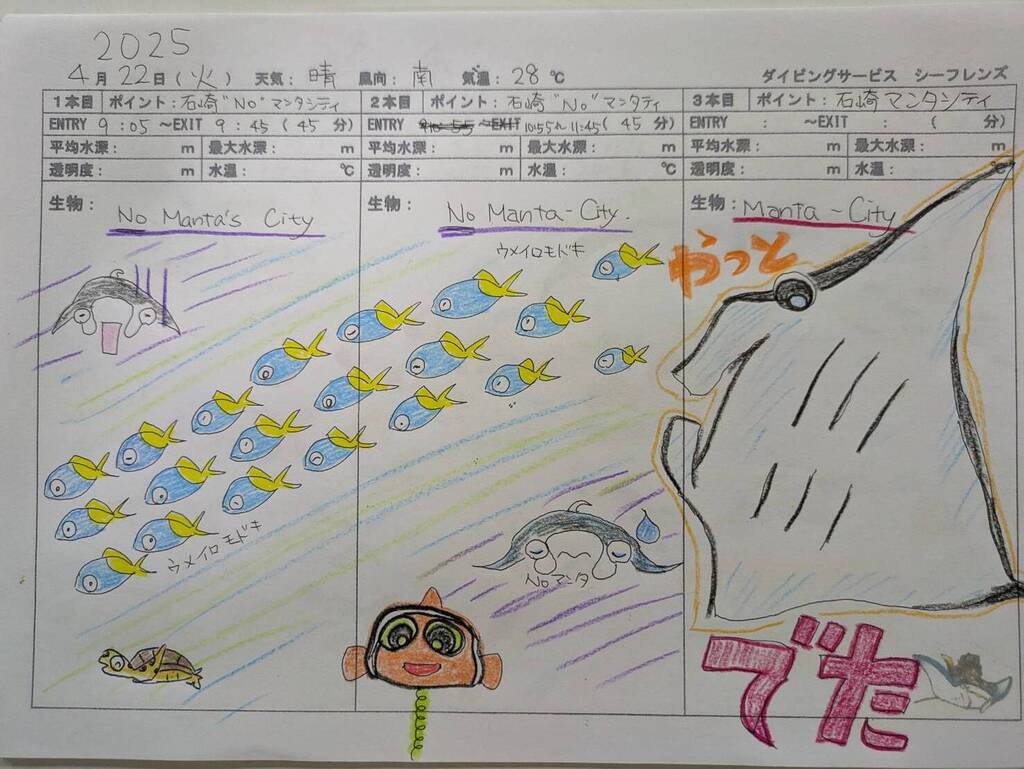 2025
4月22日(火) 天気: 晴 風向: 南 気温: 28℃ ダイビングサービス シーフレンズ
1本目 ポイント: 石崎"No"マンタシティ
ENTRY 9:05 ~EXIT 9:45 ( 45 分)
平均水深: m 最大水深: m
透明度: m 水温: ℃
生物: No Manta's City
ウメイロモドキ
2本目 ポイント: 石崎"No"マンタティ
ENTRY ~EXIT 10:55~11:45 ( 45 分)
平均水深: m 最大水深: m
透明度: m 水温: ℃
生物: No Manta-City.
ウメイロモドキ
Noマンタ
3本目 ポイント: 石崎マンタシティ
ENTRY : ~EXIT : ( 分)
平均水深: m 最大水深: m
透明度: m 水温: ℃
生物: Manta-City
やっと
でた